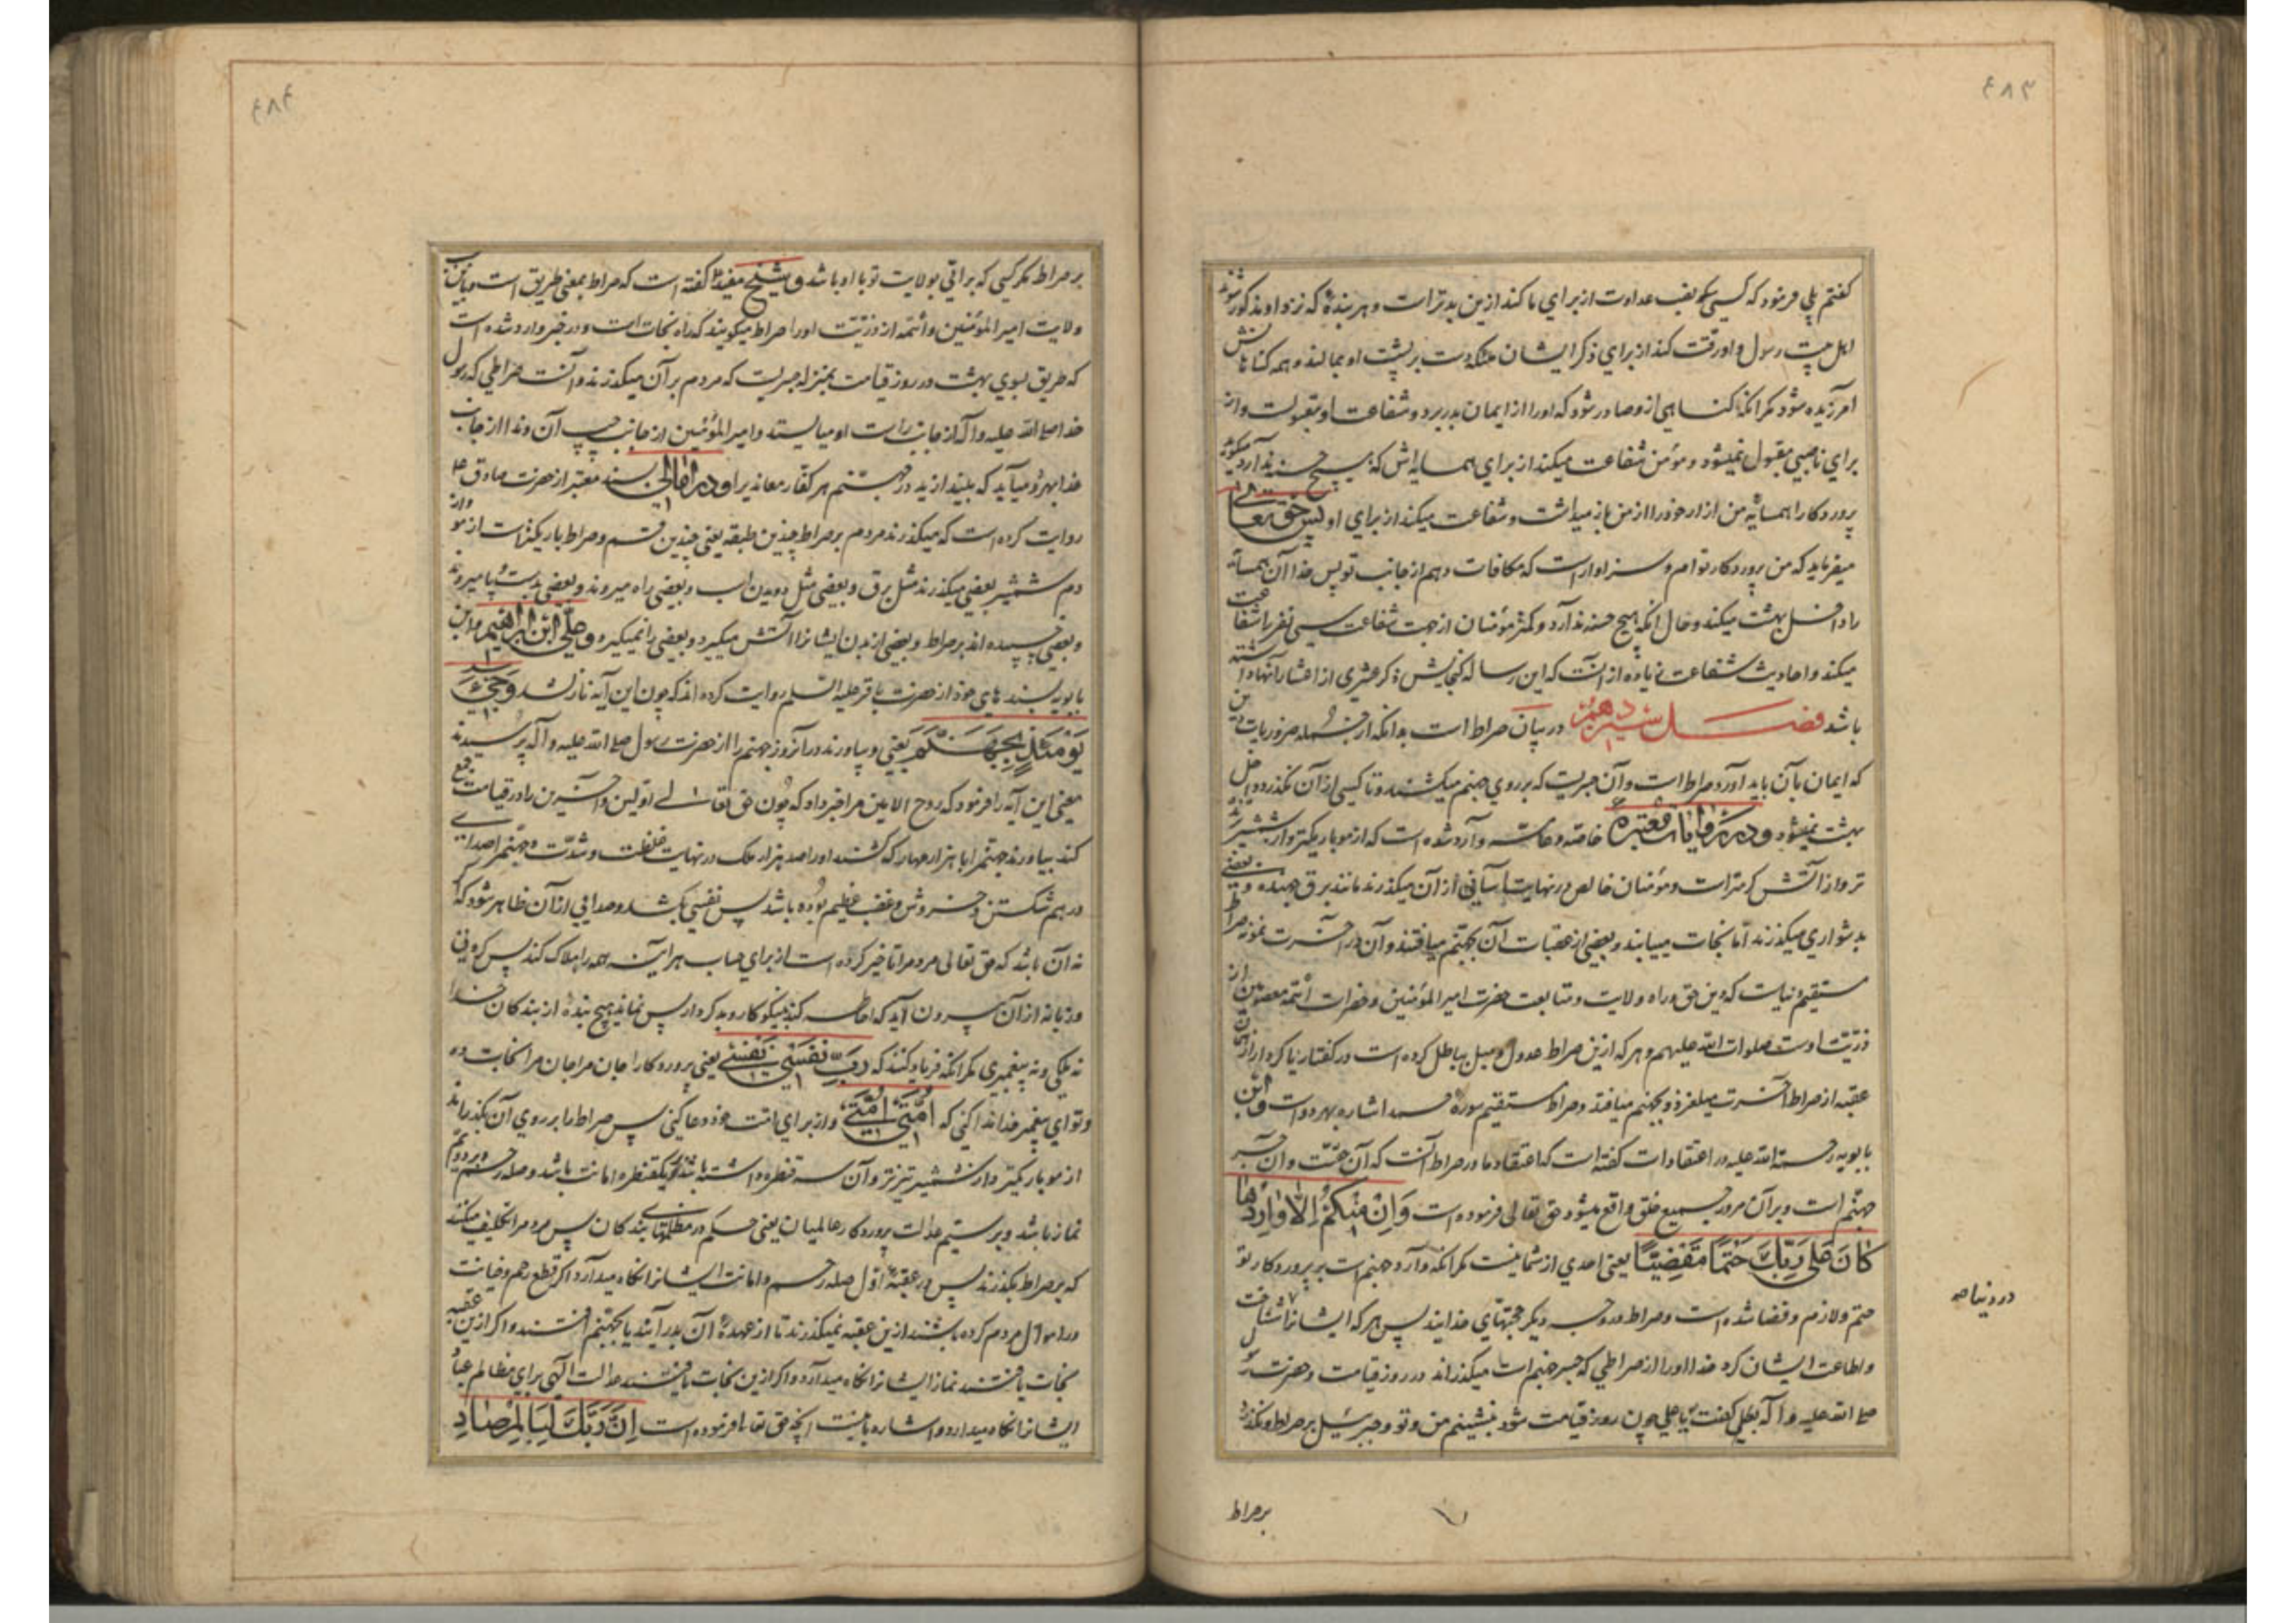 ۴۸۳
گفتم بلی فرمود که کسی که نصب عداوت از برای ما کند ازین بدتر است و هر بندهٔ که نزد او مذکور شوند
اهل بیت رسول و او رقت کند از برای ذکر ایشان ملائکه دست بر پشت او بمالند و همه گناهانش
آمرزیده شود مگر آنکه گناهی از و صادر شود که او را از ایمان بدر برد و شفاعت او مقبولست و از
برای ناصبی مقبول نمیشود و مؤمن شفاعت میکند از برای همسایه اش که هیچ حسنه ندارد میگوید
پروردکارا همسایهٔ من آزار خود را از من باز میداشت و شفاعت میکند از برای او پس حق تعالی
میفرماید که من پروردکار توام و سزاوار است که مکافات دهم از جانب تو پس خدا آن همسایه
را داخل بهشت میکند و حال آنکه هیچ حسنه ندارد و کمتر مؤمنان از جهت شفاعت سی نفر را شفاعت
میکند و احادیث شفاعت زیاده از آنست که این رساله گنجایش ذکر عشری از اعشار آنها داشته
باشد فصل سیزدهم در بیان صراط است بدانکه از جمله ضروریات دین
که ایمان بآن باید آورد صراط است و آن جسریست که بر روی جهنم میکشند و تا کسی از آن نگذرد داخل
بهشت نمیشود و در روایات معتبره خاصه و عامه وارد شده است که از مو باریکتر و از شمشیر برنده
تر و از آتش گرمتر است و مؤمنان خالص در نهایت آسانی از آن میکذرند مانند برق جهنده و بعضی
بدشواری میکذرند اما نجات مییابند و بعضی از عقبات آن بجهنم میافتند و آن در آخرت نمونه صراط
مستقیم دنیاست که دین حق و راه ولایت و متابعت حضرت امیر المؤمنین و حضرات ائمه معصومین از
ذریت اوست صلوات الله علیهم و هر که ازین صراط عدول و میل بباطل کرده است در گفتار یا کردار از همان
عقبه از صراط آخرت میلغزد و بجهنم میافتد و صراط مستقیم سورهٔ حمد اشاره بهر دو است و ابن
بابویه رحمة الله علیه در اعتقادات گفته است که اعتقاد ما در صراط آنست که آن حقست و آن جسر
جهنم است و بر آن مرور جمیع خلق واقع میشود حق تعالی فرموده است وَاِنْ مِنْکُمْ اِلّا وارِدُها
کانَ عَلی رَبِّکَ حَتْماً مَقْضِیّاً یعنی احدی از شما نیست مگر آنکه وارد جهنم است بر پروردکار تو
حتم و لازم و قضا شده است و صراط در وجه دیگر حجتهای خدایند پس هر که ایشانرا شناخت
در دنیا صح
و اطاعت ایشان کرد خدا او را از صراطی که جسر جهنم است میکذراند در روز قیامت و حضرت رسول
صلی الله علیه و آله بعلی گفت یا علی چون روز قیامت شود بنشینم من و تو و جبرئیل بر صراط و نگذرد
بر صراط
۴۸۴
بر صراط مگر کسی که براتی بولایت تو با او باشد و شیخ مفید گفته است که صراط بمعنی طریق است و باین سبب
ولایت امیر المؤمنین و ائمه از ذریت او را صراط میگویند که راه نجات است و در خبر وارد شده است
که طریق بسوی بهشت در روز قیامت بمنزله جسریست که مردم بر آن میکذرند و آنست صراطی که رسول
خدا صلی الله علیه و آله از جانب راست او میایستد و امیر المؤمنین از جانب چپ آن و ندا از جانب
خدا بهر دو میآید که بیندازید در جهنم هر کفار معاند را و در امالی بسند معتبر از حضرت صادق ع
روایت کرده است که میکذرند مردم بر صراط چندین طبقه یعنی چندین قسم و صراط باریکتر است از مو و از
دم شمشیر بعضی میکذرند مثل برق و بعضی مثل دویدن اسب و بعضی راه میروند و بعضی بدست و پا میروند
و بعضی چسپیده اند بر صراط و بعضی از بدن ایشانرا آتش میگیرد و بعضی را نمیگیرد و علی ابن ابراهیم و ابن
بابویه بسند های خود از حضرت باقر علیه السلم روایت کرده اند که چون این آیه نازل شد وَجِیءَ
یَوْمَئِذٍ بِجَهَنَّمَ یعنی و بیاورند در آنروز جهنم را از حضرت رسول صلی الله علیه و آله پرسیدند
معنی این آیه را فرمود که روح الامین مرا خبر داد که چون حق تعالی اولین و آخرین را در قیامت جمع
کند بیاورند جهنم را با هزار مهار که کشند او را صد هزار ملک در نهایت غلظت و شدت و جهنم را صدای
در هم شکستن و خروش و غضب عظیم بوده باشد پس نفسی بکشد و صدایی از آن ظاهر شود که اگر
نه آن باشد که حق تعالی مردم را تاخیر کرده است از برای حساب هر آینه همه را هلاک کند پس گردنی
و زبانه از آن بیرون آید که احاطه کند بنیکو کار و بد کردار پس نماند هیچ بندهٔ از بندکان خدا
نه ملکی و نه پیغمبری مگر آنکه فریاد کنند که رَبِّ نَفْسی نَفْسی یعنی پروردکارا جان مرا جان مرا نجات ده
و تو ای پیغمبر خدا ندا کنی که اُمَّتی اُمَّتی و از برای امت خود دعا کنی پس صراط را بر روی آن بگذرانند
از مو باریکتر و از شمشیر تیزتر و آن سه قنطره داشته باشد بر یک قنطره امانت باشد و صله رحم و بر دویم
نماز باشد و بر سیم عدالت پروردکار عالمیان یعنی حکم در مظلمهای بندکان پس مردم را تکلیف میکنند
که بر صراط بگذرند پس در عقبهٔ اول صله رحم و امانت ایشانرا نگاه میدارد اگر قطع رحم و خیانت
در اموال مردم کرده باشند ازین عقبه نمیکذرند تا از عهدهٔ آن بدر آیند یا بجهنم افتند و اگر ازین عقبه
نجات یافتند نماز ایشانرا نگاه میدارد و اگر ازین نجات یافتند عدالت الهی برای مظالم عباد
ایشانرا نگاه میدارد و اشاره باینست آنچه حق تعالی فرموده است اِنَّ رَبَّکَ لَبِالْمِرْصادِ